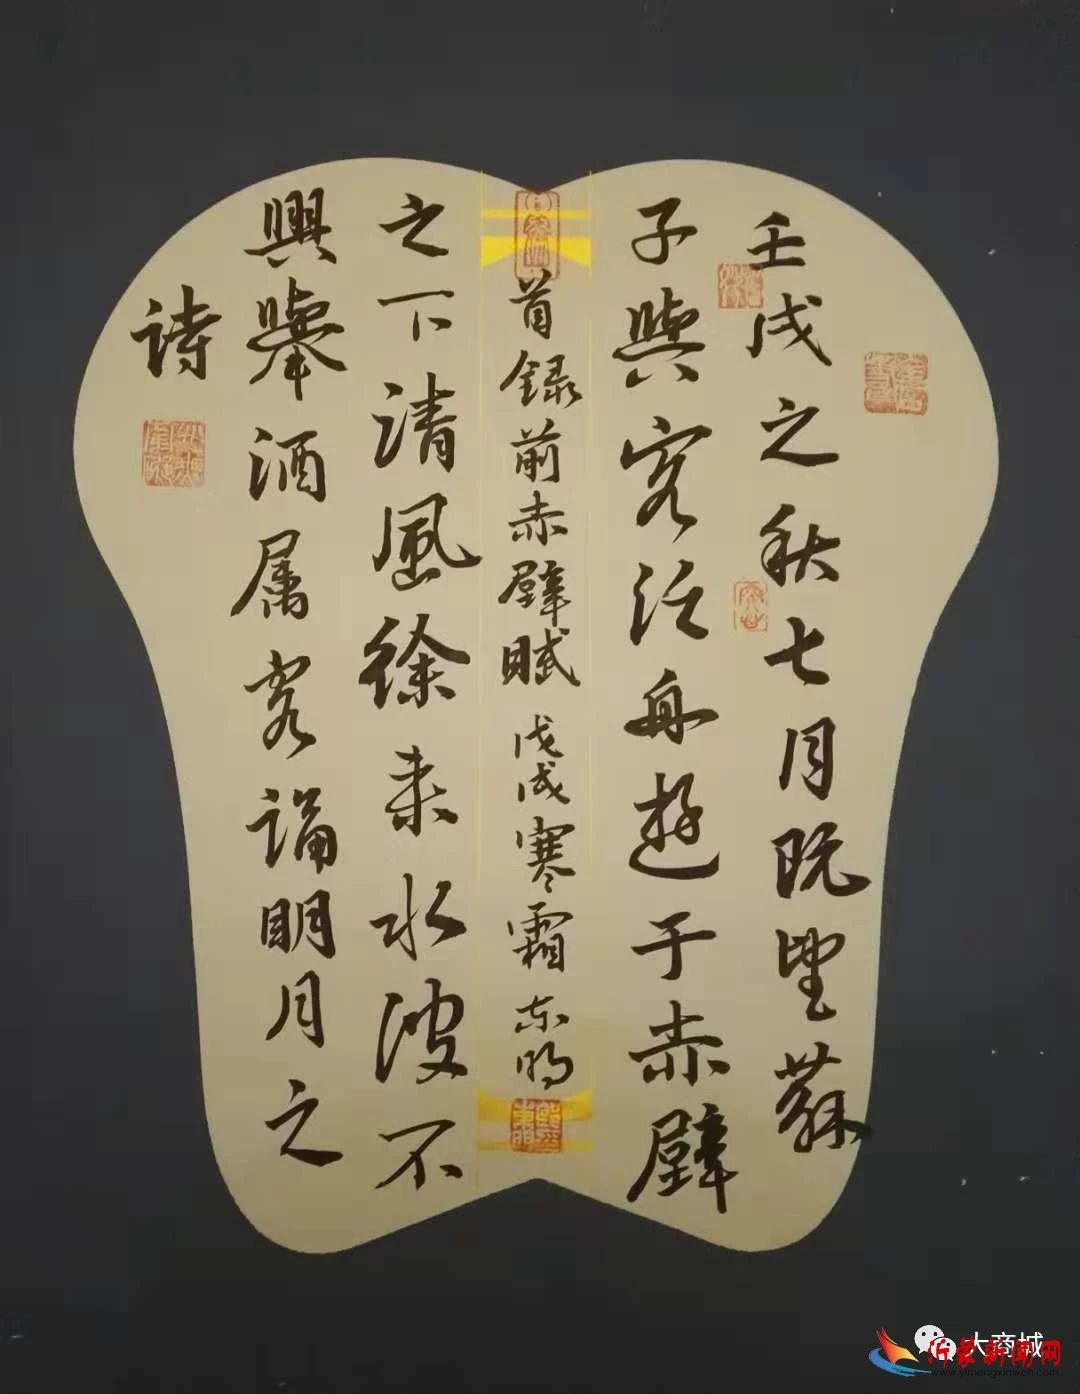 壬戌之秋七月既望蘇
子與客泛舟遊于赤壁
首録前赤壁賦戊戌寒霜东明
之下清風徐来水波不
興舉酒属客誦明月之
詩
大商城
沂蒙新闻网
www.yimengxinwen.com